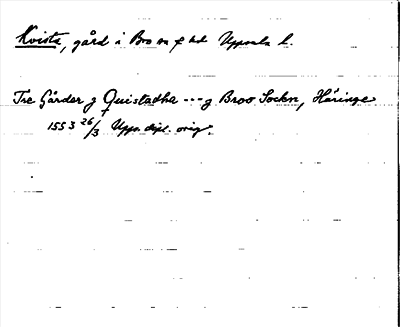 Kvista, gård i Bro sn o hd Uppsala l.
Tre Gårder j Quistadha --- j Broo Sockn, Håringe
1553 26/3 Upps. dipl. orig.